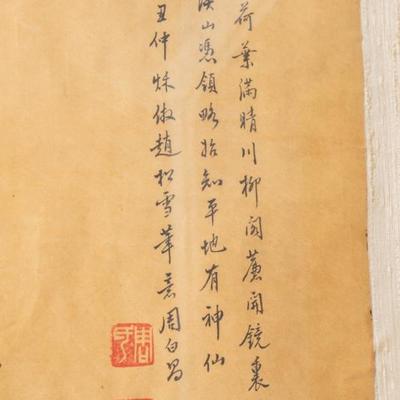 荷葉滿晴川柳閣簾開鏡裏
溪山憑領略始知平地有神仙
丑仲秋倣趙松雪筆意周白昌